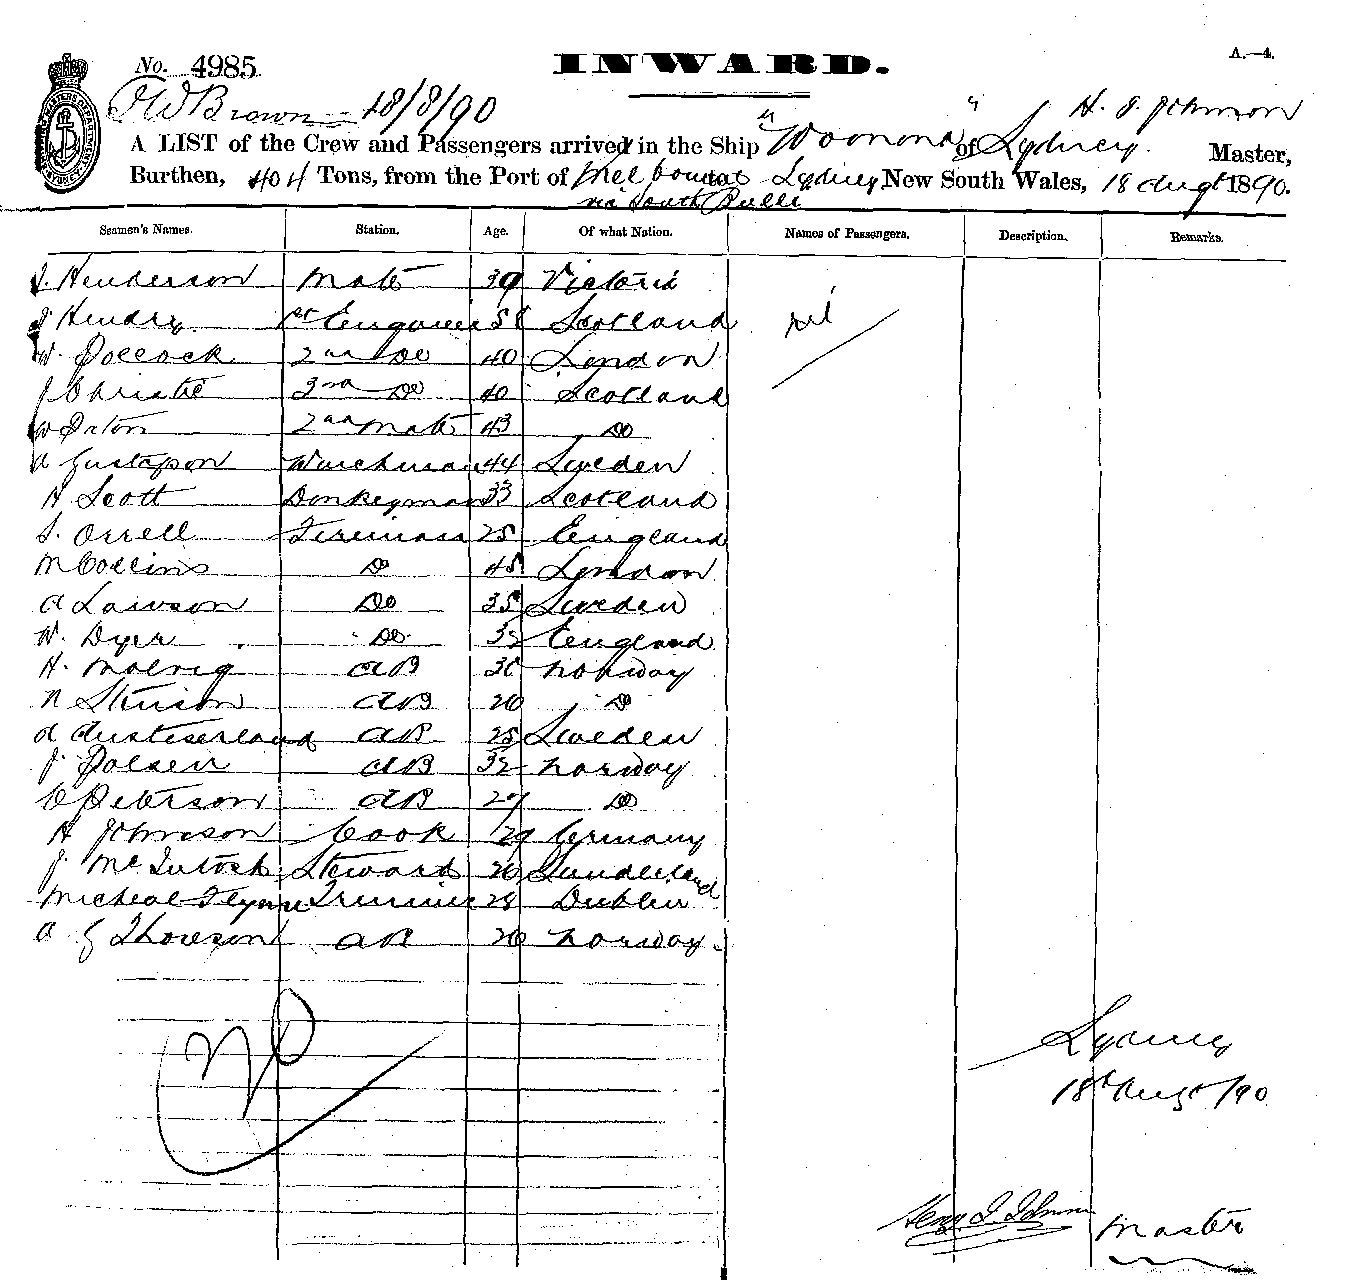 No. 4985 INWARD. A.—4.
J W Brown 18/8/90 H. J. Johnson
A LIST of the Crew and Passengers arrived in the Ship "Woonona" of Sydney. Master,
Burthen, 404 Tons, from the Port of Melbourne Sydney New South Wales, 18 Augt 1890.
via South Bulli
Seamen's Names. Station. Age. Of what Nation. Names of Passengers. Description. Remarks.
J. Henderson Mate 39 Victoria
J Hendry 1st Engineer 58 Scotland nil
W. Pollock 2nd Do 40 London
J Christie 3rd Do 40 Scotland
W Paton 2nd Mate 43 Do
A Gustafson Watchman 44 Sweden
A Scott Donkeyman 33 Scotland
S. Orrell Fireman 25 England
M Collins Do 45 London
A Lawson Do 35 Sweden
W. Dyer Do 32 England
H. AB 30 Norway
N AB 26 Do
A AB 25 Sweden
J. Polsen AB 32 Norway
C Peterson AB 27 Do
A Johnson Cook 29 Germany
J. McIntosh Steward 26 Sunderland
Micheal Flynn Trimmer 28 Dublin
A G Thoreson AB 26 Norway
Sydney
18th Augt /90
Henry J. Johnson Master